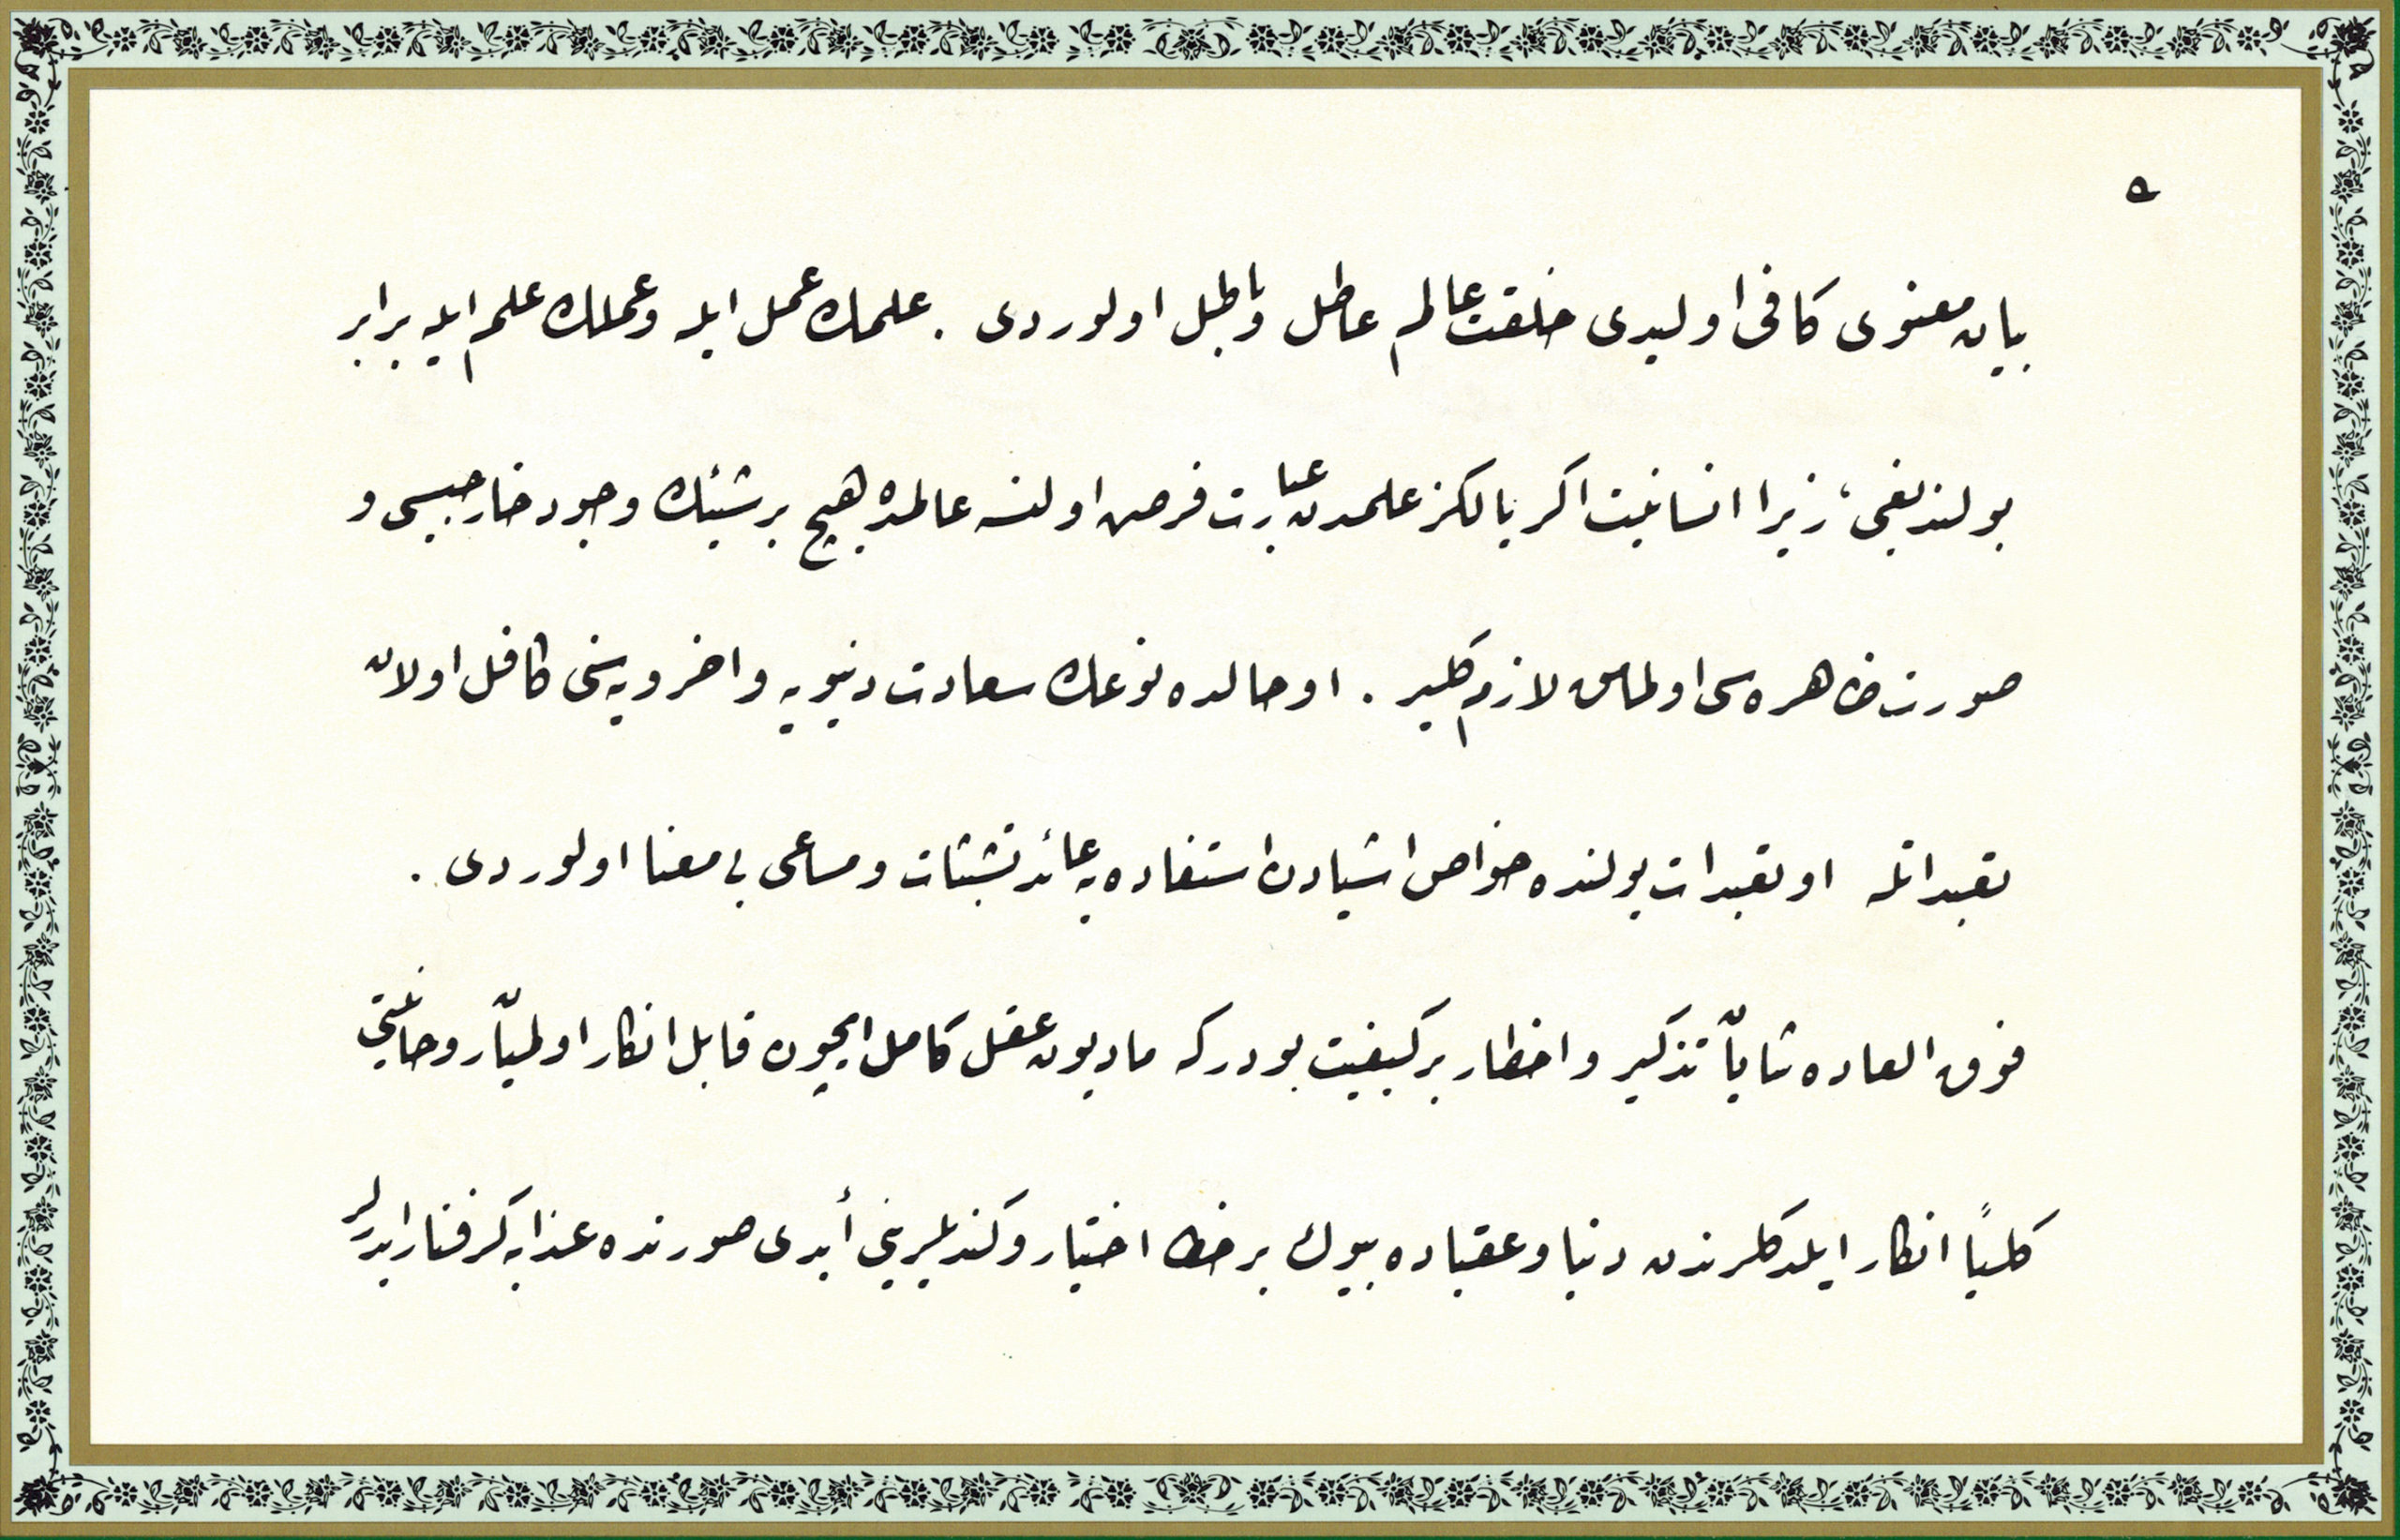 ٥
بیان معنوی کافی اولیدی خلقت عالم عاطل و باطل اولوردی . علمك عمل ایله و عملك علم ایله برابر
بولندیغی، زیرا انسانیت اکر یالکز علمدن عبارت فرض اولنسه عالمده هیچ بر شیئك وجود خارجیسی و
صورت ظاهره‌سی اولمامق لازم کلیر . او حالده نوعك سعادت دنیویه و اخرویه‌سنی کافل اولان
تعبداتله او تعبدات یولنده خواص اشیادن استفاده‌یه عائد تشبثات و مساعی بی معنا اولوردی .
فوق العاده شایان تذکیر و اخطار بر کیفیت بودرکه مادیون عقل کامل ایچون قابل انکار اولمیان روحانیتی
کلیاً انکار ایلدکلرندن دنیا و عقباده بیوك بر خطا اختیار و کندیلرینی أبدی صورتده عذابه کرفتار ایدرلر